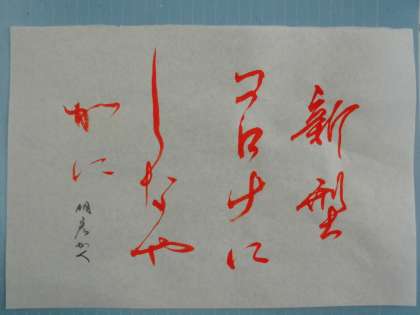 新型
コロナに
しなや
かに